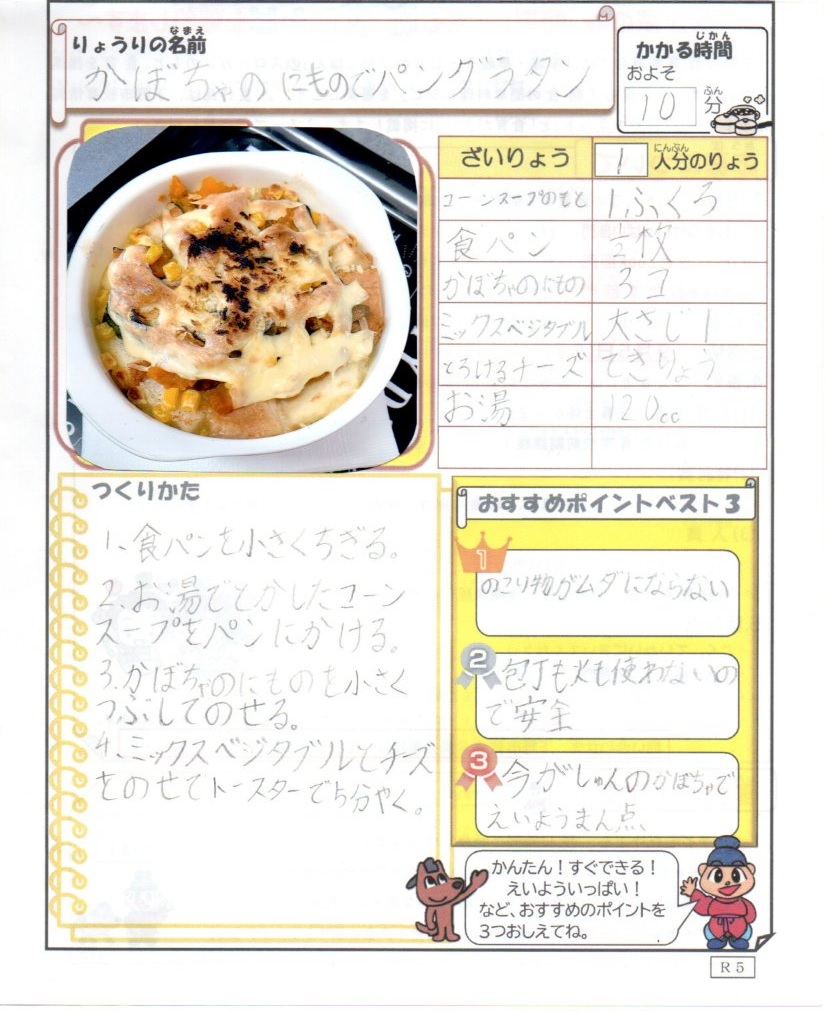 りょうりの名前
なまえ
かぼちゃのにものでパングラタン
かかる時間
じかん
およそ
10分
ふん
ざいりょう
1人分のりょう
にんぶん
コーンスープのもと 1ふくろ
食パン 1/2枚
かぼちゃのにもの 3コ
ミックスベジタブル 大さじ1
とろけるチーズ てきりょう
お湯 120cc
つくりかた
1、食パンを小さくちぎる。
2、お湯でとかしたコーン
スープをパンにかける。
3、かぼちゃのにものを小さく
つぶしてのせる。
4、ミックスベジタブルとチーズ
をのせてトースターで5分やく。
おすすめポイントベスト3
1
のこり物がムダにならない
2
包丁も火も使わないの
で安全
3
今がしゅんのかぼちゃで
えいようまん点
かんたん！すぐできる！
えいよういっぱい！
など、おすすめのポイントを
3つおしえてね。
R5